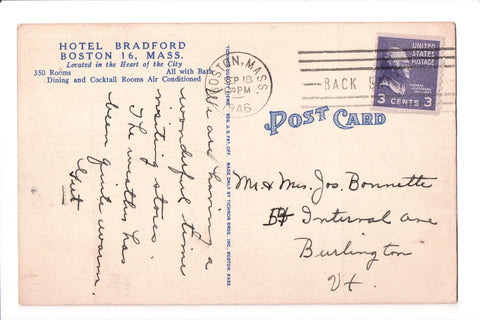 HOTEL BRADFORD
BOSTON 16, MASS.
Located in the Heart of the City
350 Rooms All with Bath
Dining and Cocktail Rooms Air Conditioned
BOSTON, MASS.
SEP 19
PM
1946
BACK
UNITED
STATES
POSTAGE
3 CENTS 3
POST CARD
We are having a
wonderful time
visiting stores.
The weather has
been quite warm.
MADE ONLY BY TICHNOR BROS., INC. BOSTON, MASS.
Mr & Mrs. Jos. Bonnette
Internal Ave
Burlington
Vt.